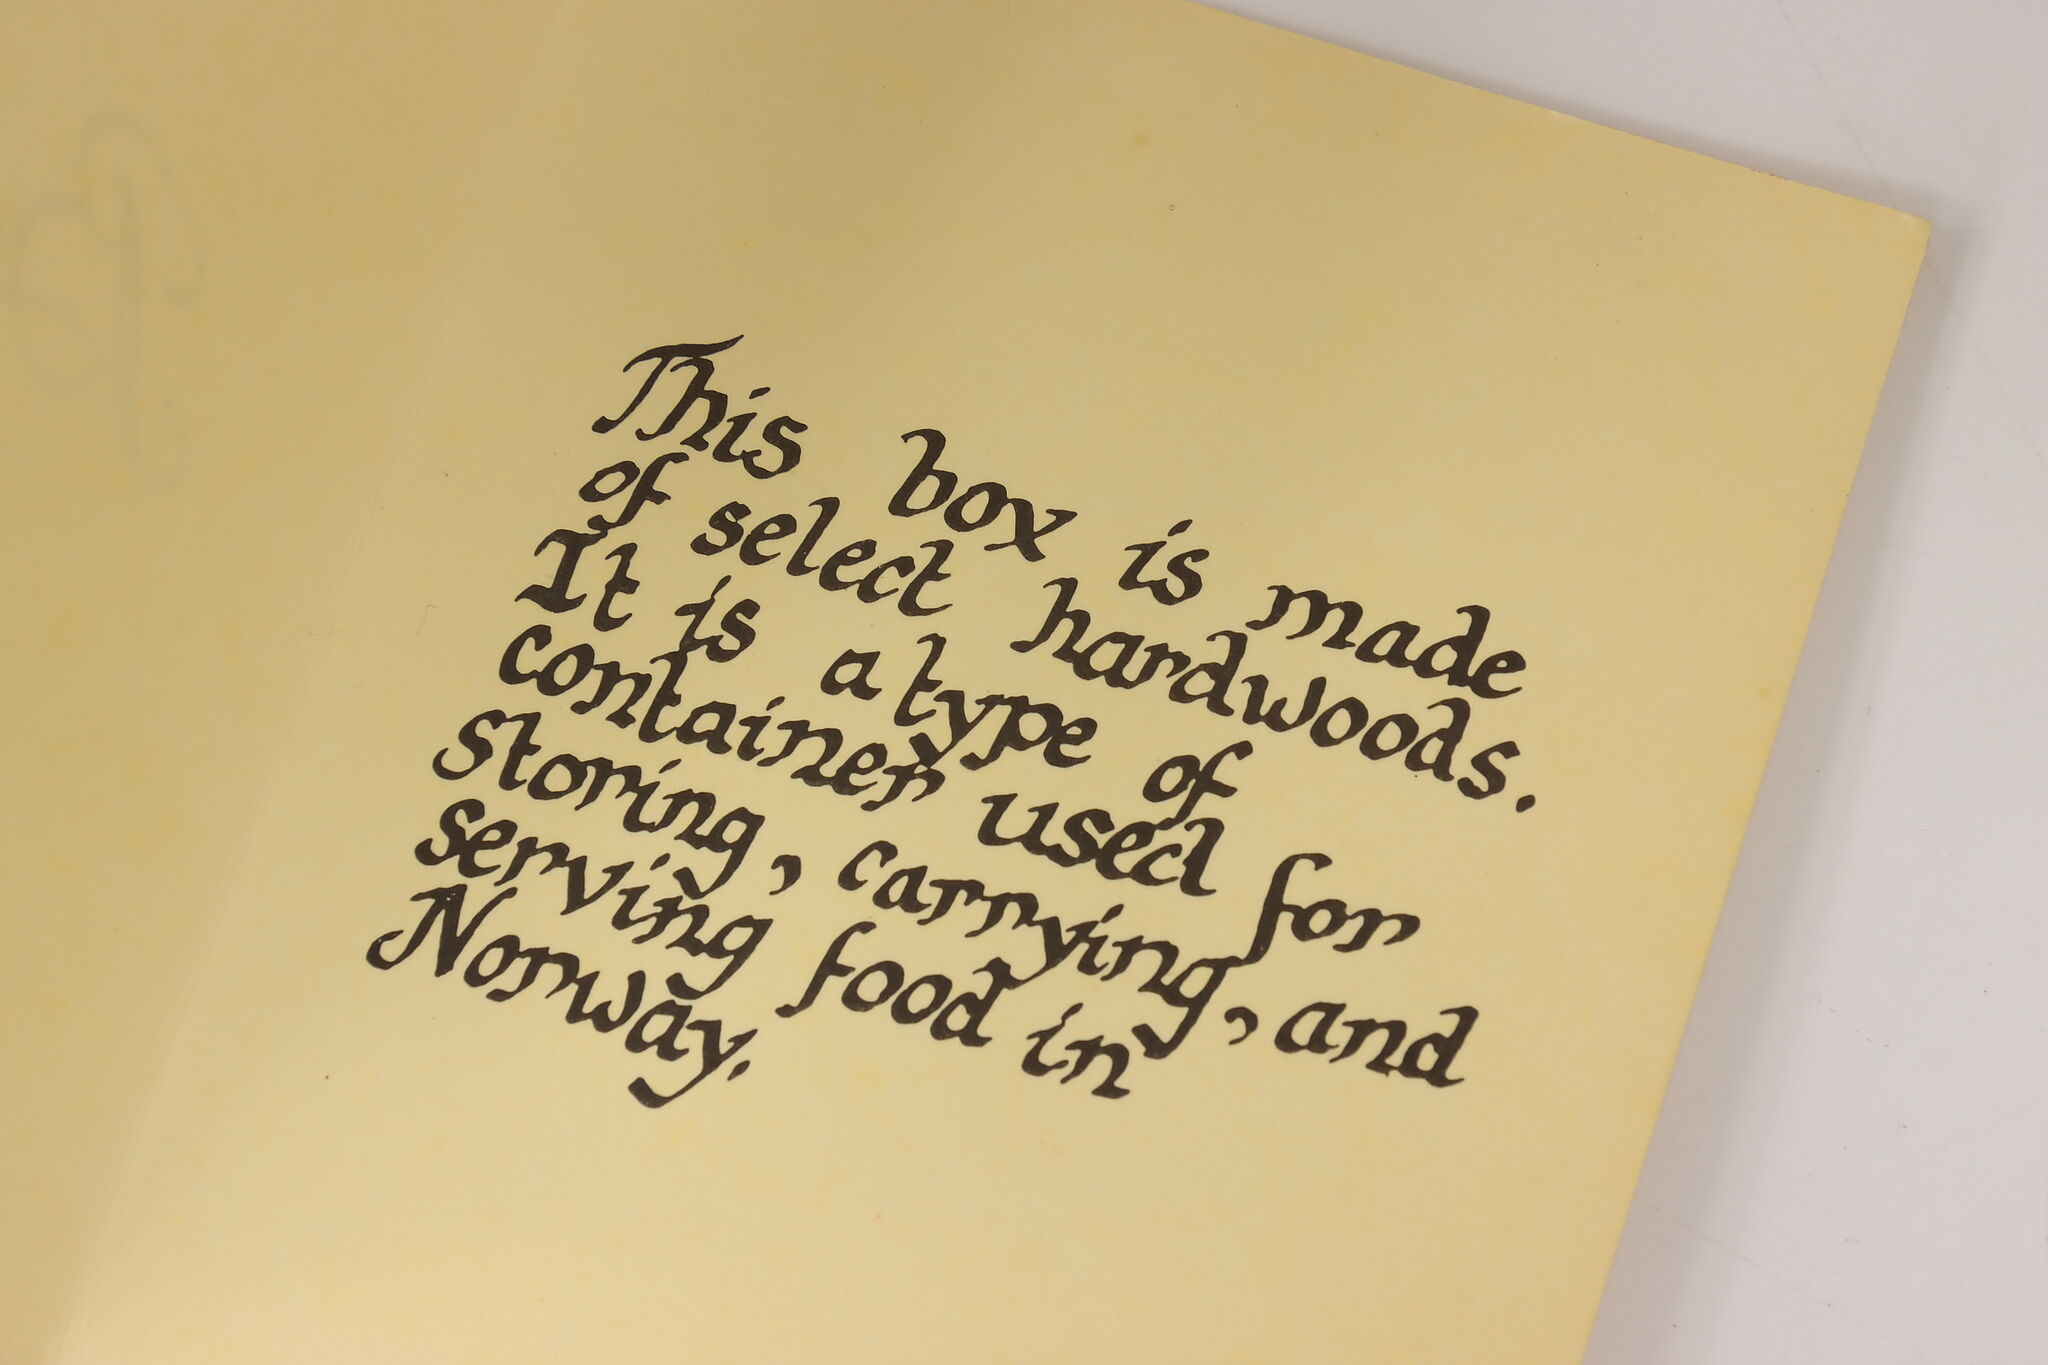 This box is made
of select hardwoods.
It is a type of
container used for
storing, carrying, and
serving food in
Norway.